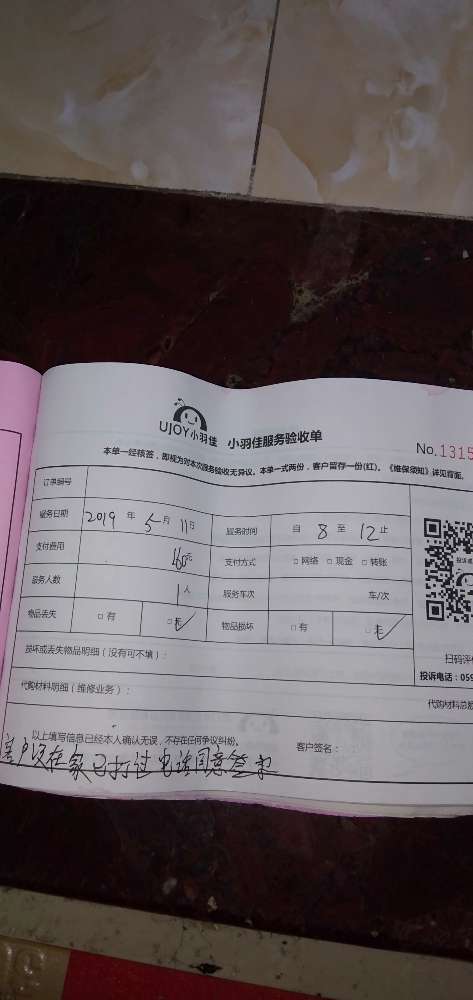 UJOY小羽佳 小羽佳服务验收单
No.1315
本单一经核签，即视为对本次服务验收无异议。本单一式两份，客户留存一份(红)。《维保须知》详见背面。
订单编号
服务日期 2019 年 5 月 11 日 服务时间 自 8 至 12 止
支付费用 160 元 支付方式 □ 网络 □ 现金 □ 转账
服务人数 1 人 服务车次 车/次
物品丢失 □ 有 □ 无 物品损坏 □ 有 □ 无
扫码评
损坏或丢失物品明细（没有可不填）：
投诉电话：059
代购材料明细（维修业务）：
代购材料总
以上填写信息已经本人确认无误，不存在任何争议纠纷。 客户签名：
客户没在家已打过电话同意签字